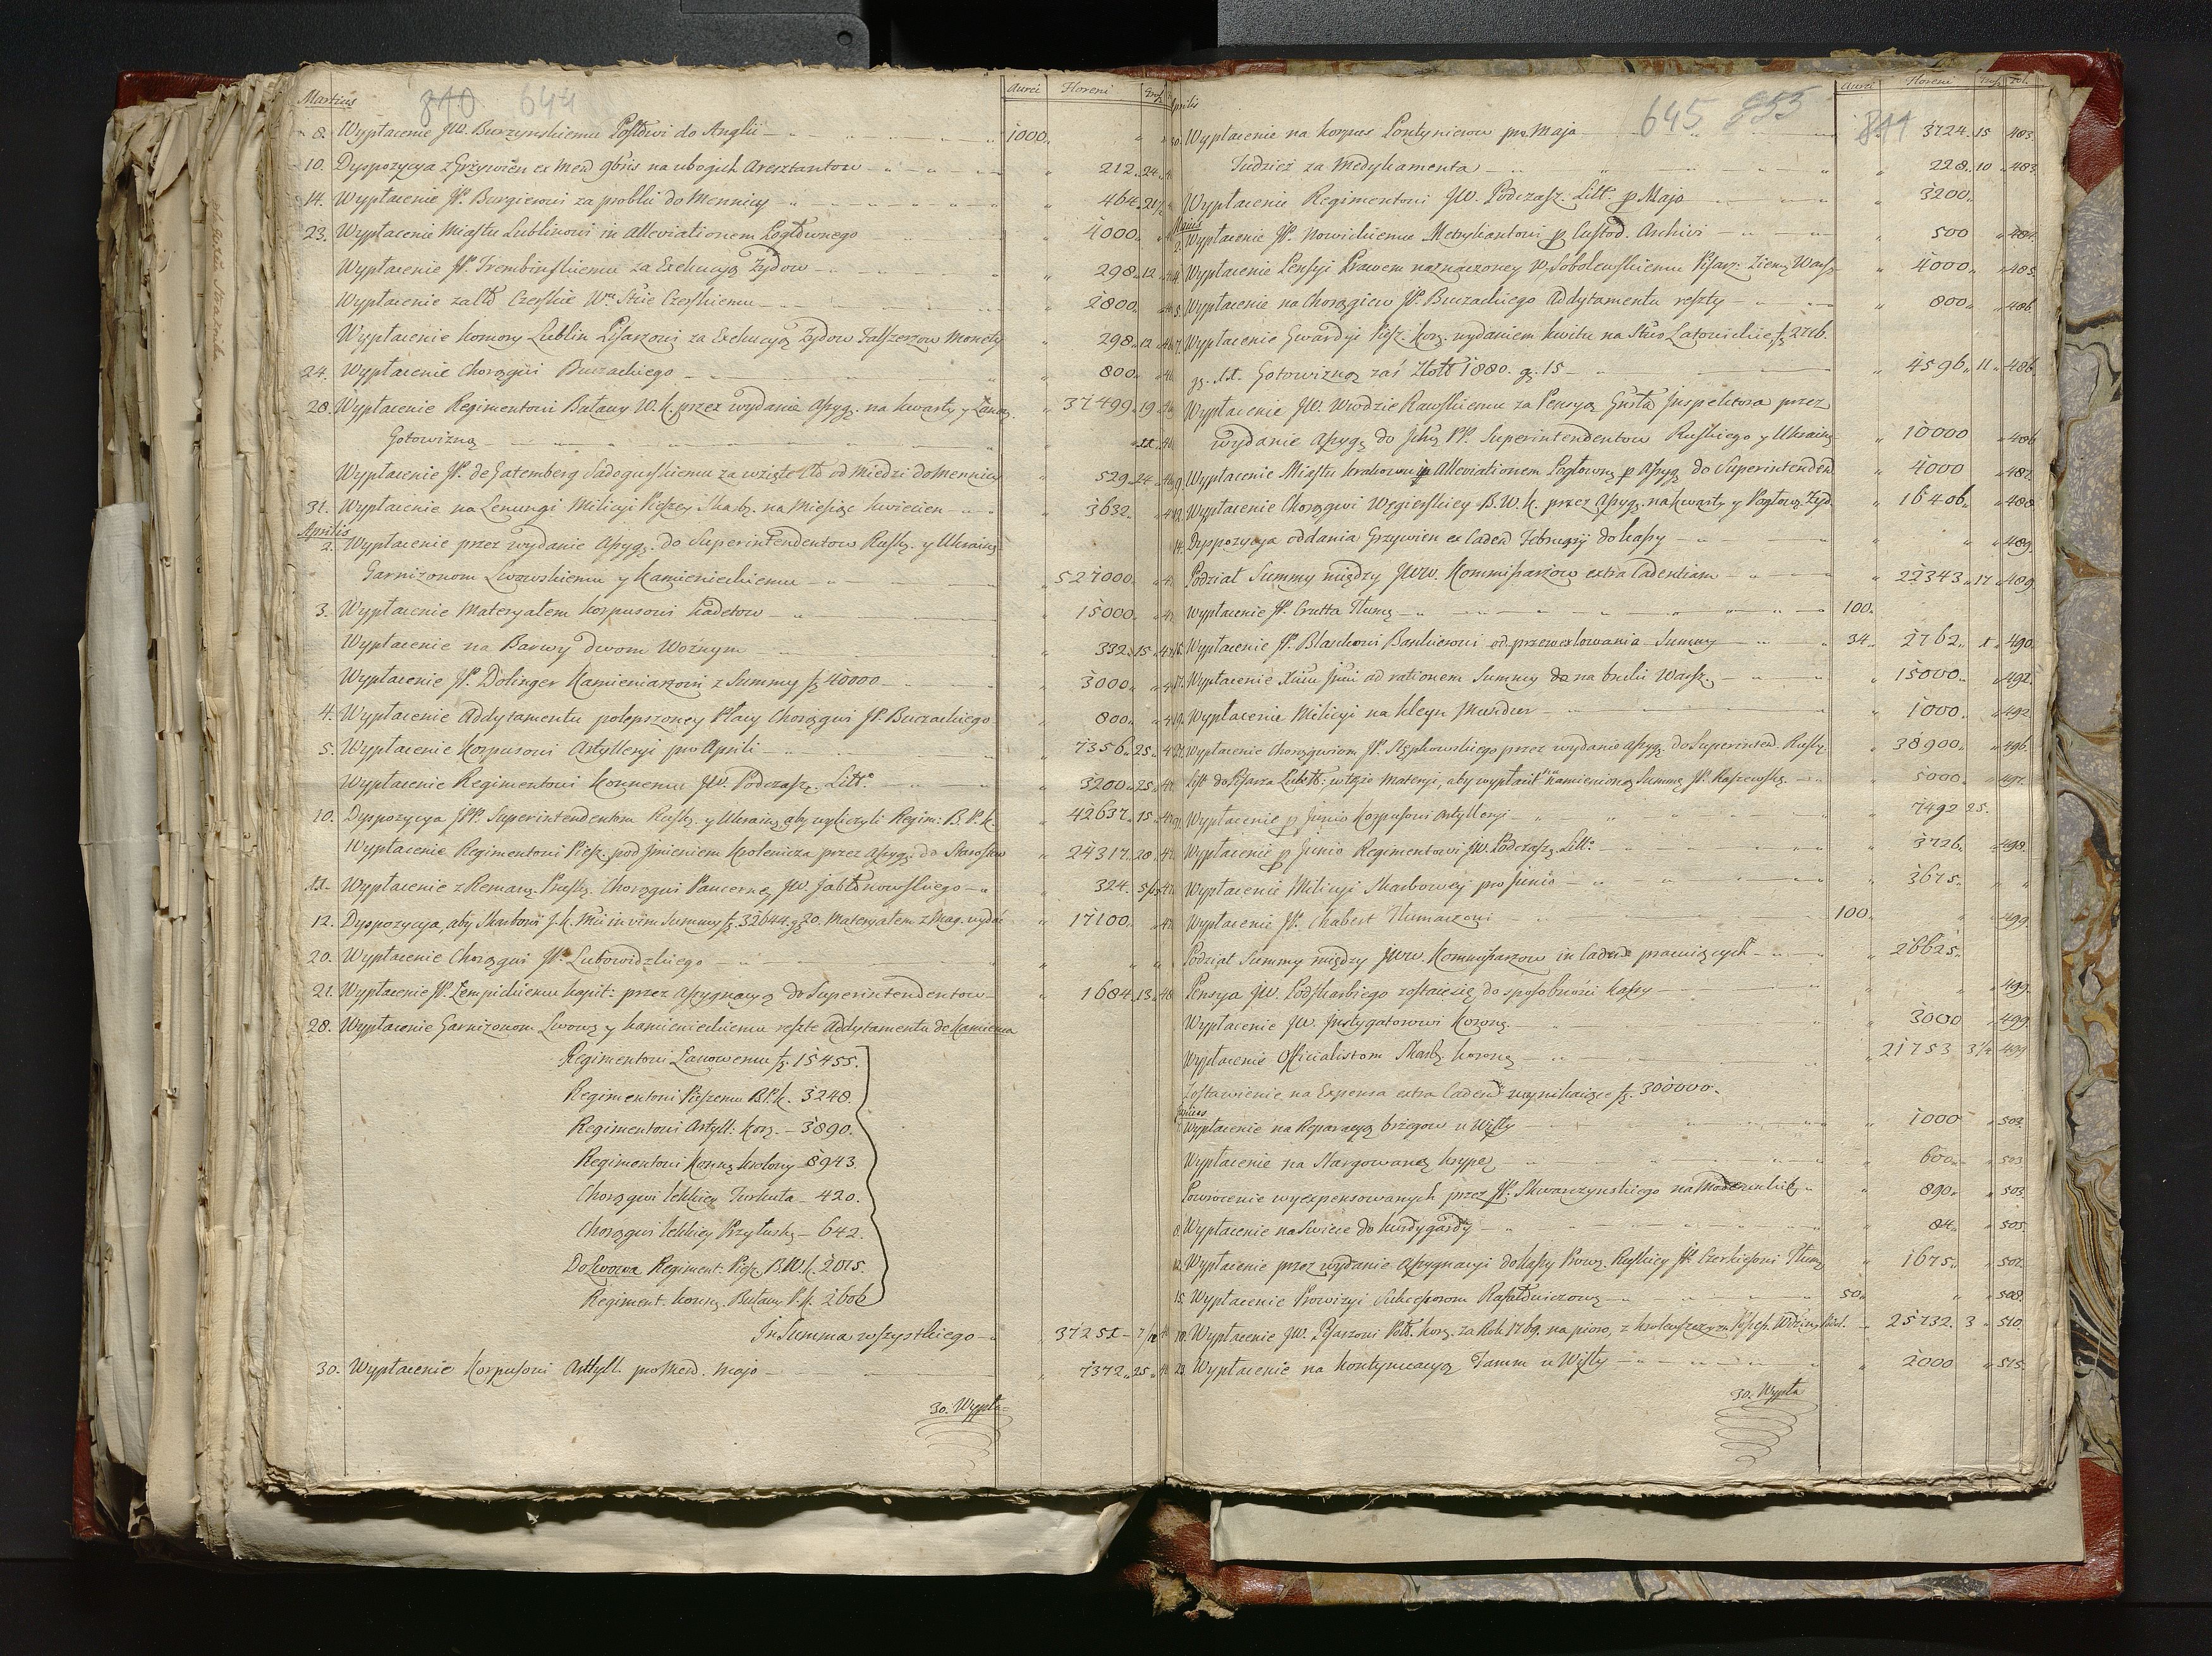 Martius 840 644 Aurei Floreni Gros.
8. Wypłacenie JW. Burzynskiemu Posłowi do Anglii 1000.
10. Dyspozycya z Grzywien ex Mens. gbris na ubogich Aresztantow 212. 24.
14. Wypłacenie JP. Burgierowi za problii do Mennicy 464. 21 1/2
23. Wypłacenie Miastu Lublinowi in Alleviationem Pogłownego 4000.
Wypłacenie JP. Trembinskiemu za Exekucyą Zydow 298. 12.
Wypłacenie za Cło Czerskie Wu Stcie Czerskiemu 2800.
Wypłacenie Komory Lublin Pisarzowi za Exekucyą Zydow Fałszerzow Monety 298. 12.
24. Wypłacenie Chorągwi Buczackiego 800.
28. Wypłacenie Regimentowi Buławy W. K. przez wydanie Assyg. na kwarty y Łanow. 37499. 19.
Gotowizną
Wypłacenie JP. de Gatemberg Sadogurskiemu za wzięte Cło od Miedzi do Mennicy 529. 24.
31. Wypłacenie na Lenungi Milicyi Pieszey Skarb. na Miesiąc Kwiecien 3632.
Aprilis
2. Wypłacenie przez wydanie Assyg. do Superintendentow Rusk. y Ukrainy
Garnizonom Lwowskiemu y Kamienieckiemu 527000.
3. Wypłacenie Materyałem Korpusowi Kadetow 15000.
Wypłacenie na Barwy dwom Woźnym 332. 15.
Wypłacenie JP. Dolinger Kamieniarzowi z Summy f. 40000 3000.
4. Wypłacenie Addytamentu polepszoney Płacy Chorągwi JP. Buczackiego 800.
5. Wypłacenie Korpusowi Artylleryi pro Aprili 7356. 25.
Wypłacenie Regimentowi Konnemu JW. Podczasz. Litt. 3200. 25.
10. Dyspozycya JPP. Superintendentom Rusk. y Ukrainy, aby wyliczyli Regim: B. P. K. 42637. 15.
Wypłacenie Regimentowi Piesz. pod Jmieniem Krolewicza przez Assyg. do Starostw 24317. 20.
11. Wypłacenie z Remanę. Prusk. Chorągwi Pancerney JW. Jabłonowskiego 324.
12. Dyspozycya, aby Skarbowi J. K. Mci in vim Summy f. 32644. g. 20. Materyałem z Mag. wydać 17100.
20. Wypłacenie Chorągwi JP. Lubowidzkiego
21. Wypłacenie JP. Zempickiemu Kapit: przez Assygnacyą do Superintendentow 1684. 13.
28. Wypłacenie Garnizonom Lwow. y Kamienieckiemu reszte Addytamentu do Kamienca
Regimentowi Łanowemu f. 15455.
Regimentowi Pieszemu B.P.K. 3248.
Regimentowi Artyll: Kor. 3890.
Regimentowi Konn. Krolowy 8943.
Chorągwi lekkiey Turkuła 420.
Chorągwi lekkiey Przyłusk. 642.
Do Lwowa Regiment. Piesz. B.W.K. 2015.
Regiment. Konn. Buławy P. K. 2606
In Summa wszystkiego
30. Wypłacenie Korpusowi Artyll. pro Mens. Majo 7372. 25.
30. Wypła=
Aprilis 645 855 841 Aurei Floreni Gros. Fol.
30. Wypłacenie na Korpus Pontynierow pro Majo 3724. 15 483.
Tudzież za Medykamenta 228. 10 483.
Wypłacenie Regimentowi JW. Podczasz. Litt. p. Majo 3200.
Majus
2. Wypłacenie JP. Nowickiemu Metrykantowi p. Custod. Archivi 500 484.
Wypłacenie Pensyi Prawem naznaczoney W. Sobolewskiemu Pisarz. Ziem. Warsz. 4000. 485.
5. Wypłacenie na Chorągiew JP. Buczackiego Addytamentu reszty 800. 486.
7. Wypłacenie Gwardyi Piesz. Kor. wydaniem kwitu na Stwo Latowickie f. 2716.
gr. 11. Gotowizną zaś Złott 1880. g. 15 4596. 11. 486.
Wypłacenie JW. Wwodzie Rawskiemu za Pensyą Gnrła Jnspektora przez
wydanie Assyg. do Jchm. PP. Superintendentow Ruskiego y Ukrain. 10000 486
9. Wypłacenie Miastu Krakowu in Alleviationem Pogłown. p. Assyg. do Superintendent. 4000 487.
12. Wypłacenie Chorągwi Węgierskiey B.W.K. przez Assyg. na kwarty y Pogłow. Zyd. 16406. 488.
14. Dyspozycya oddania Grzywien ex Caden Februarij do Kassy 489.
Podział Summy między JWW. Kommissarzow extra Cadentiam 22343. 17. 489.
Wypłacenie JP. Crutta Tłum. 100.
16. Wypłacenie JP. Blankowi Bankierowi od przewexlowania Summy 34. 2762. 490.
17. Wypłacenie ad rationem Summy na bruki Warsz. 15000. 492.
19. Wypłacenie Milicyi na kleyn Mundur 1000. 492
21. Wypłacenie Chorągwiom JP. Stępkowskiego przez wydanie Assyg. do Superintend. Rusk. 38900. 496.
List do Pisarza Lubelsk. w teyże Materyi, aby wypłacił namienioną Summę JP. Raszewsk. 5000. 497.
Wypłacenie p. Junio Korpusowi Artylleryi 7492 25.
Wypłacenie p. Junio Regimentowi JW. Podczasz. Litt. 3726. 498.
Wypłacenie Milicyi Skarbowey pro Junio 3675.
Wypłacenie JP. Chabert Tłumaczowi 100. 499.
Podział Summy między JWW. Kommissarzow in Caden pracuiących 26625.
Pensya JW. Podskarbiego zostaie się do sposobności Kassy 499.
Wypłacenie JW. Jnstygatorowi Koron. 3000 499.
Wypłacenie Officialistom Skarb. Koron. 21753 3 1/2 499
Zostawienie na Expensa extra Caden. wynikaiące f. 300000.
Junius
Wypłacenie na Reparacyą brzegow u Wisły 1000 503.
Wypłacenie na Stargowaną krypę 600. 503.
Powrocenie wyexpensowanych przez JP. Skwarczynskiego na 890. 503.
8. Wypłacenie na swiece do kurdygardy 84. 505.
12. Wypłacenie przez wydanie Assygnacyi do Kassy Prow. Ruskiey JP. Czerkiesowi Tłum. 1675. 507.
15. Wypłacenie Prowizyi Sukcessorom Rafałowiczow. 50. 508.
18. Wypłacenie JW. Pisarzowi Pol. Kor. za Rok 1769. na pioro, 25732. 3 510.
23. Wypłacenie na kontynuacyą Tamm u Wisły 2000 515.
30. Wypła